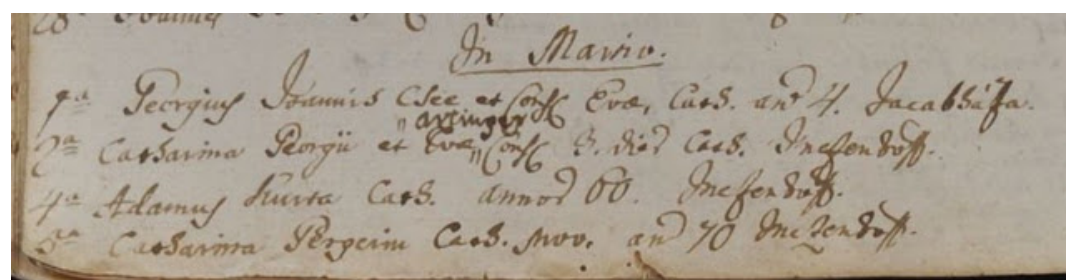 In Martio.
1ª Georgius Joannis Csee et Cons Evæ, Cath. an̄ 4. Jacabháza.
„ arvinger
2ª Catharina Georgii et Evæ „ Cons 3. dier Cath. Inesendorff.
4ª Adamus Kurta Cath. annor 60. Inesendorff.
5ª Catharina Pergerin Cath. prov. an̄ 70 Inezendorff.